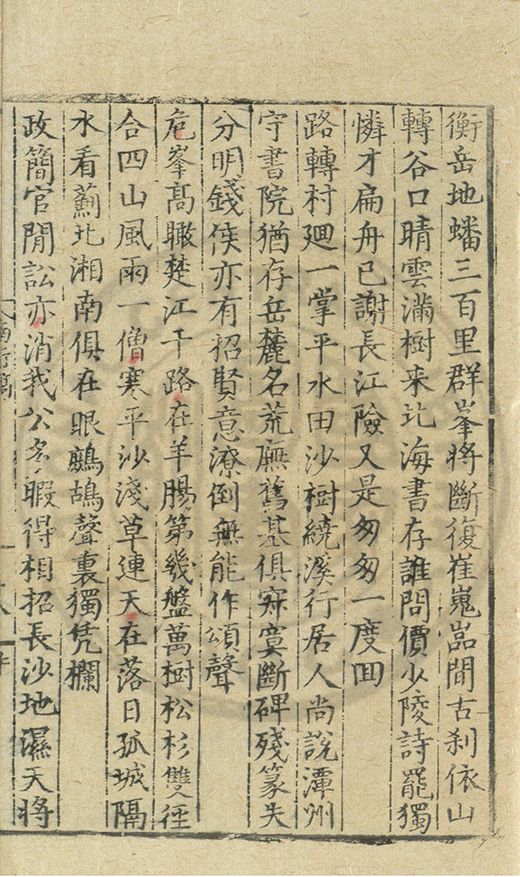 衡岳地蟠三百里群峯将斷復崔嵬嵓間古刹依山
轉谷口晴雲滿樹来北海書存誰問價少陵詩罷獨
憐才扁舟已謝長江險又是匆匆一度囬
路轉村廻一掌平水田沙樹繞溪行居人尚說潭州
守書院猶存岳麓名荒廡舊基俱寂寞斷碑殘篆失
分明錢侯亦有招賢意潦倒無能作頌聲
危峯髙瞰楚江干路在羊腸第幾盤萬樹松杉雙徑
合四山風雨一僧寒平沙淺草連天在落日孤城隔
水看薊北湘南俱在眼鷓鴣聲裏獨凭欄
政簡官閒訟亦消我公多暇得相招長沙地濕天將